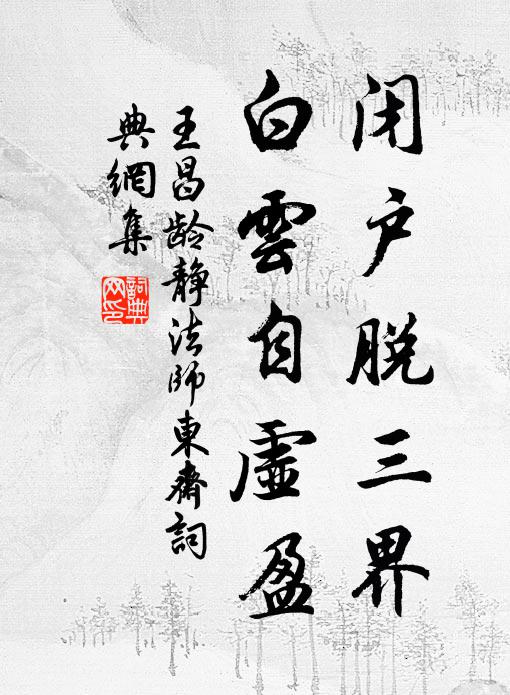 闭户脱三界
白雲自虚盈
王昌龄静法師東齋詞
典網集
詞典
网印